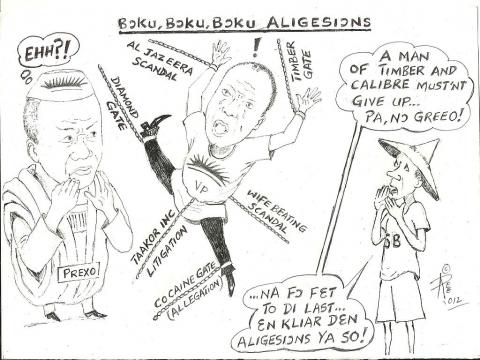 BƆKU, BƆKU, BƆKU ALIGESIƆNS
EHH?!
AL JAZEERA
SCANDAL
!
TIMBER
GATE
DIAMOND
GATE
A MAN
OF TIMBER AND
CALIBRE MUST'NT
GIVE UP...
PA, NƆ GREEO!
VP
TAAKOR INC
LITIGATION
WIFE BEATING
SCANDAL
COCAINE GATE
(ALLEGATION)
PREXO
SB
...NA FƆ FET
TO DI LAST...
EN KLIAR DEN
ALIGESIƆNS YA SO!
©
012